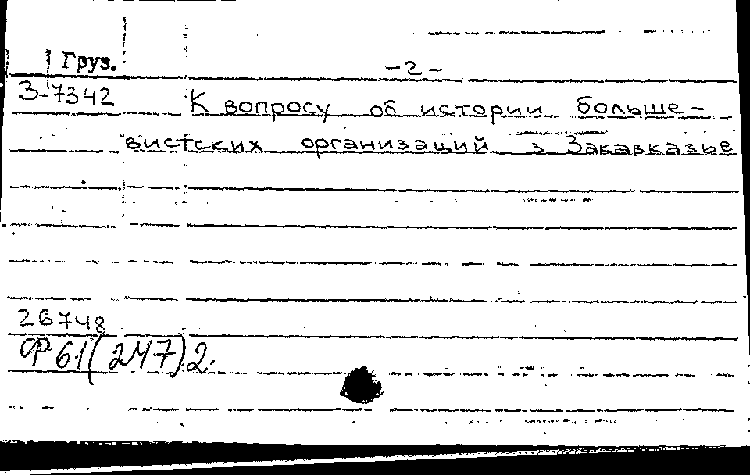 Груз.
-2-
З-7342
К вопросу об истории больше-
вистских организаций в Закавказье
26748
Ф61(247)2.